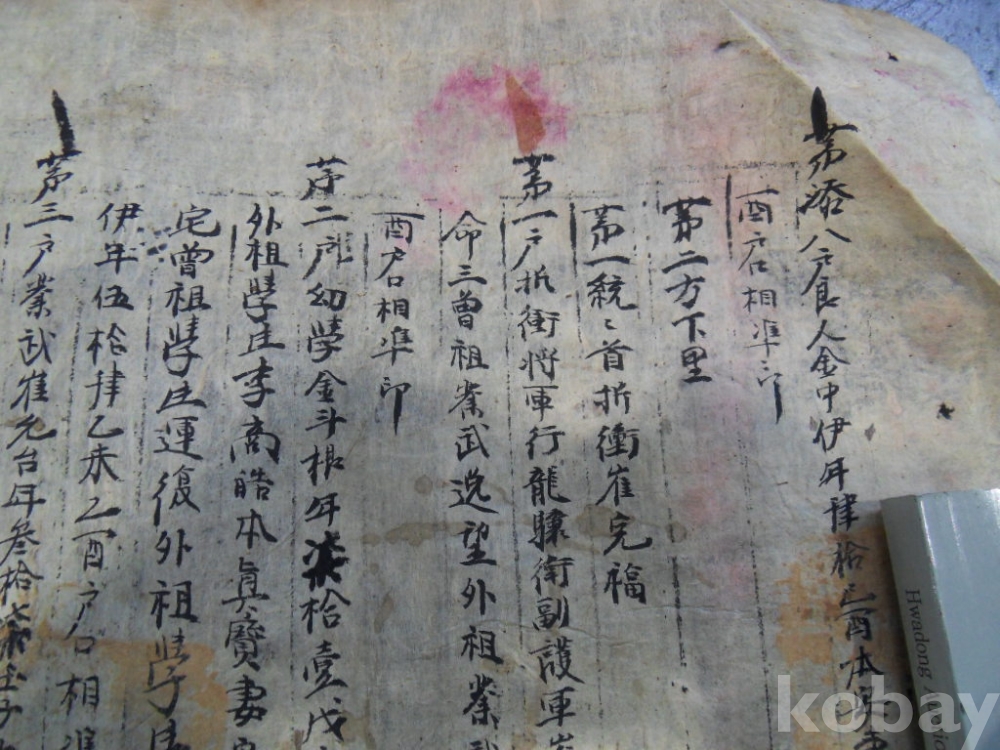 第柒八戶良人金中伊年肆拾乙酉本
酉戶口相準印
第二方下里
第一統〻首折衝崔完福
第一戶折衝將軍行龍驤衛副護軍崔
命三曾祖業武逸望外祖業武
酉戶口相準印
第二戶幼學金斗根年柒拾壹戊
外祖學生李商皓本眞寶妻
宅曾祖學生運復外祖學生
伊年伍拾肆乙未乙酉戶口相準
第三戶業武崔允台年叁拾柒壬子
Hwadong
kobay